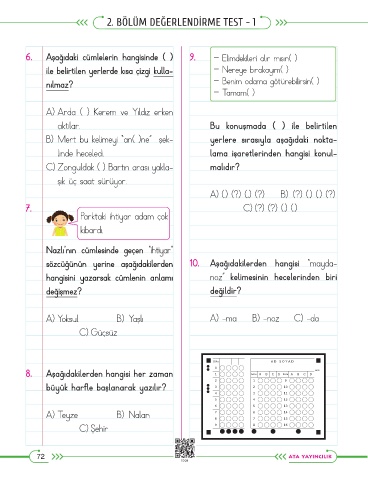 2. BÖLÜM DEĞERLENDİRME TEST - 1
6. Aşağıdaki cümlelerin hangisinde ( )
ile belirtilen yerlerde kısa çizgi kulla-
nılmaz?
A) Arda ( ) Kerem ve Yıldız erken
aktılar.
B) Mert bu kelimeyi "an( )ne" şek-
linde heceledi.
C) Zonguldak ( ) Bartın arası yakla-
şık üç saat sürüyor.
7.
Parktaki ihtiyar adam çok
kibardı.
Nazlı'nın cümlesinde geçen "ihtiyar"
sözcüğünün yerine aşağıdakilerden
hangisini yazarsak cümlenin anlamı
değişmez?
A) Yoksul B) Yaşlı
C) Güçsüz
8. Aşağıdakilerden hangisi her zaman
büyük harfle başlanarak yazılır?
A) Teyze B) Nalan
C) Şehir
9.
– Elimdekileri alır mısın( )
– Nereye bırakayım( )
– Benim odama götürebilirsin( )
– Tamam( )
Bu konuşmada ( ) ile belirtilen
yerlere sırasıyla aşağıdaki nokta-
lama işaretlerinden hangisi konul-
malıdır?
A) (.) (?) (.) (?) B) (?) (.) (.) (?)
C) (?) (?) (.) (.)
10. Aşağıdakilerden hangisi "mayda-
noz" kelimesinin hecelerinden biri
değildir?
A) -ma B) -noz C) -da
AD SOYAD
72
ATA YAYINCILIK